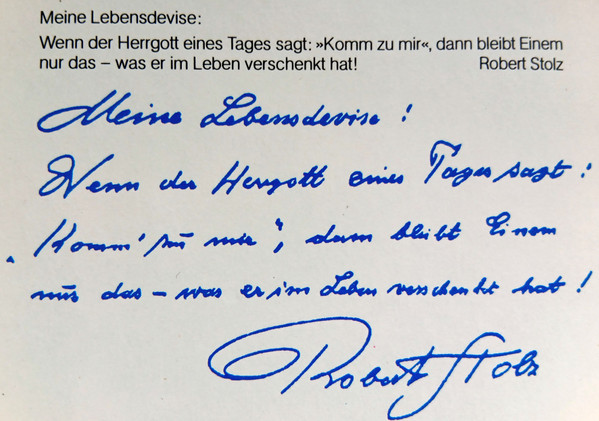 Meine Lebensdevise:
Wenn der Herrgott eines Tages sagt: »Komm zu mir«, dann bleibt Einem
nur das – was er im Leben verschenkt hat! Robert Stolz
Meine Lebensdevise!
Wenn der Herrgott eines Tages sagt:
„Komm' zu mir", dann bleibt Einem
nur das – was er im Leben verschenkt hat!
Robert Stolz